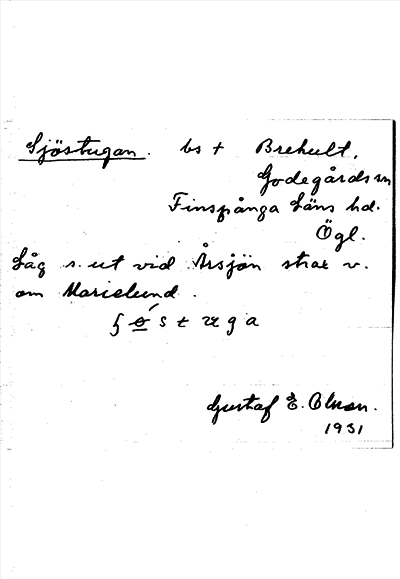 Sjöstugan. bs + Brehult,
Godegårds sn
Finspånga läns hd.
Ögl.
Låg s. ut vid Årsjön strax v.
om Marielund.
Gustaf E. Olsson.
1931